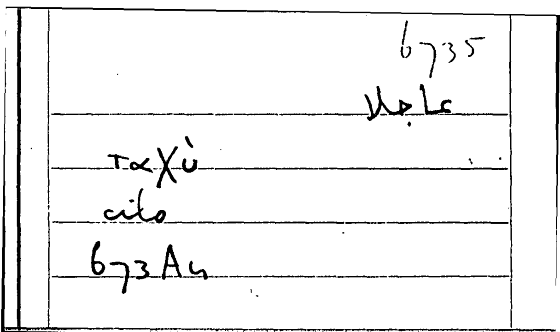 6735
عاجلا
ταχὺ
cito
673A4